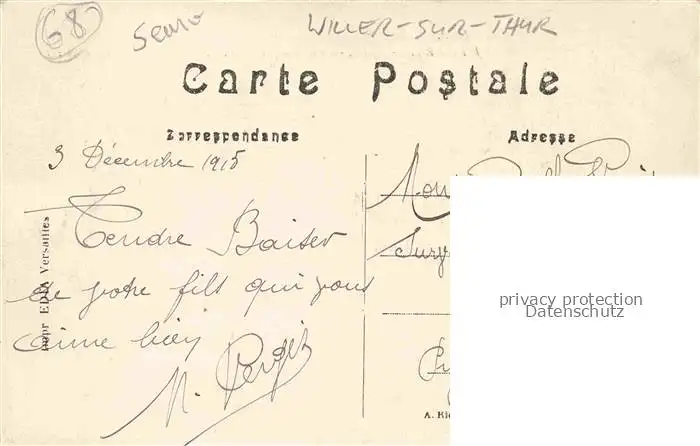 68
5 euro
WILLER-SUR-THUR
Carte Postale
Correspondance
Adresse
3 Décembre 1915
Tendre Baiser
de votre fils qui vous
aime bien
Impr EDIA Versailles
privacy protection
Datenschutz